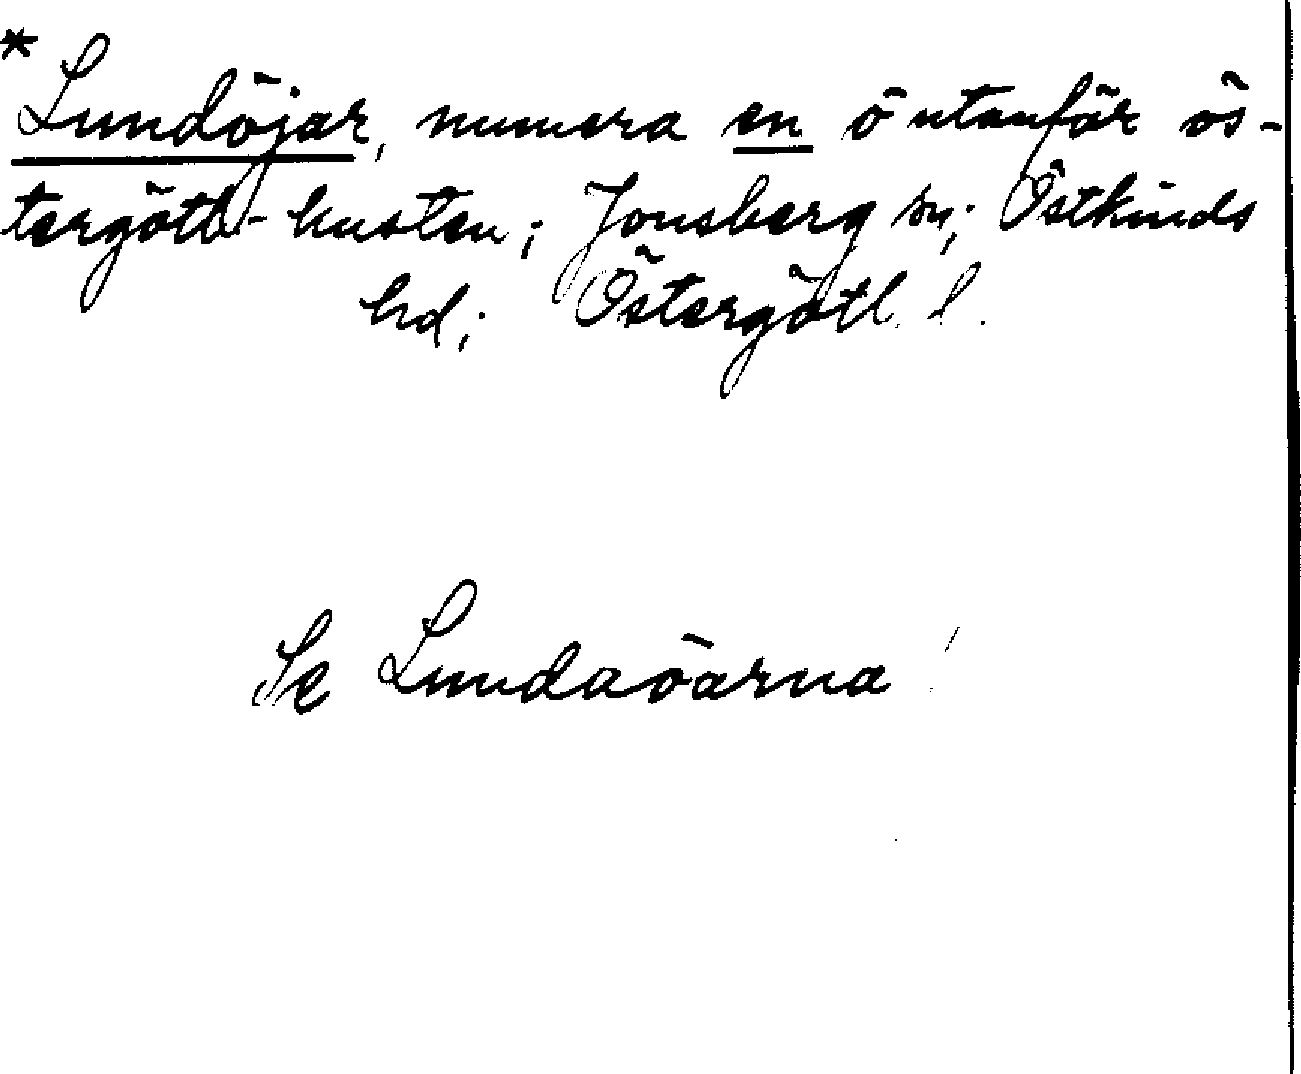 * Lundöjar, numera en ö utanför ös-
tergötl-kusten; Jonsberg sn; Östkinds
hd; Östergötl. l.
Se Lundaöarna!